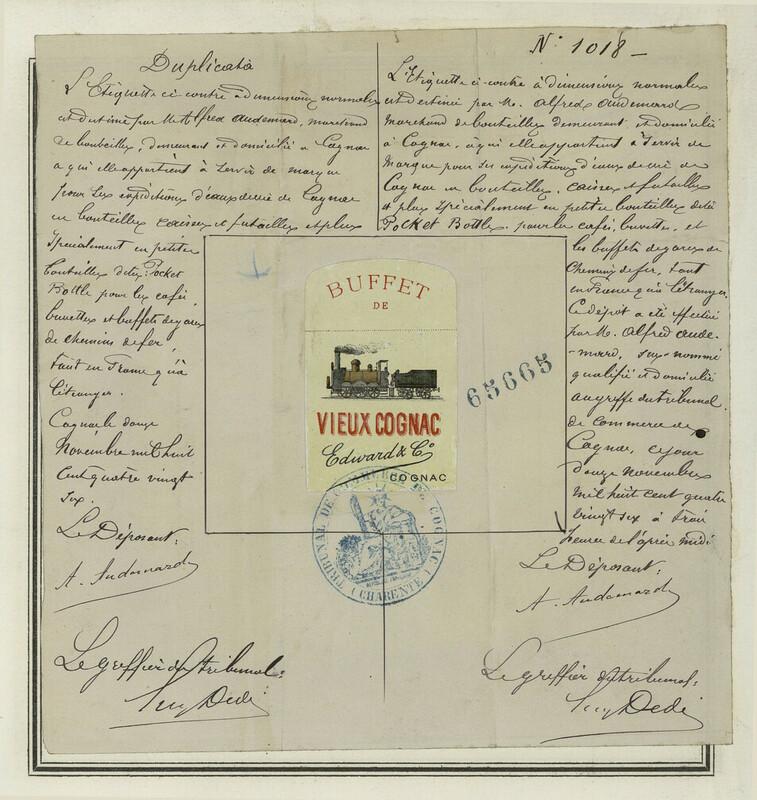 Duplicata
L'Etiquette ci contre à dimensions normales
est destinée par Mr Alfred Audemard, marchand
de bouteilles, demeurant et domicilié à Cognac
a qui elle appartient à servir de marque
pour ses expéditions d'eaux de vie de Cognac
en bouteilles caisses et futailles et plus
spécialement en petites
bouteilles dites: Pocket
Bottle pour les cafés,
buvettes et buffets de gares
de chemins de fer,
tant en France qu'à
l'étranger.
Cognac le douze
Novembre mil huit
cent quatre vingt
six.
Le Déposant:
A. Audemard
Le greffier du tribunal:
N° 1018 -
L'Etiquette ci-contre à dimensions normales
est destinée par Mr. Alfred Audemard
Marchand de bouteilles demeurant et domicilié
à Cognac, à qui elle appartient à servir de
Marque pour ses expéditions d'eaux de vie de
Cognac en bouteilles, caisses et futailles
et plus spécialement en petites bouteilles dites
Pocket Bottles, pour les cafés, buvettes, et
les buffets de gares de
chemins de fer, tant
en France qu'à l'étranger.
Ce dépôt a été effectué
par Mr. Alfred Aude-
-mard, sus-nommé
qualifié et domicilié
au greffe du tribunal
de commerce de
Cognac, ce jour
douze novembre
mil huit cent quatre
vingt six à trois
heures de l'après midi
Le Déposant:
A. Audemard
Le greffier du tribunal:
BUFFET
DE
VIEUX COGNAC
Edward & Co
COGNAC
65665
TRIBUNAL DE COMMERCE DE COGNAC
(CHARENTE)